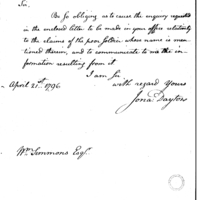 Sir.
Be so obliging as to cause the enquiry requested
in the enclosed letter to be made in your office relatively
to the claims of the poor soldier whose name is men-
tioned therein, and to communicate to me the in-
formation resulting from it
I am Sir
with regard Yours
April 21st 1796.
Jona: Dayton
Wm Simmons Esqr.